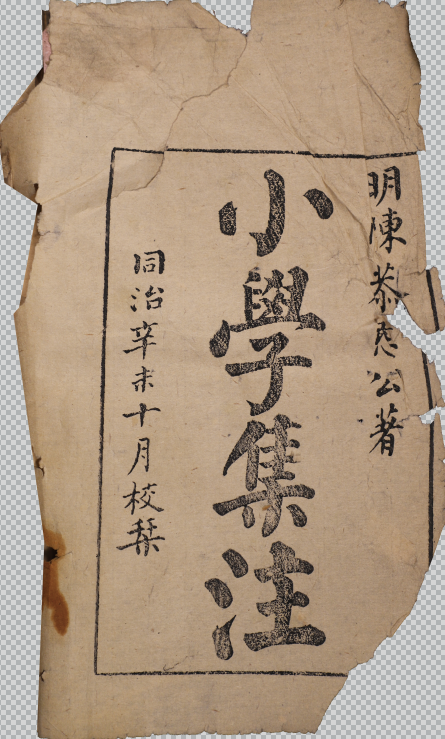 明陳恭公著
小學集注
同治辛未十月校栞